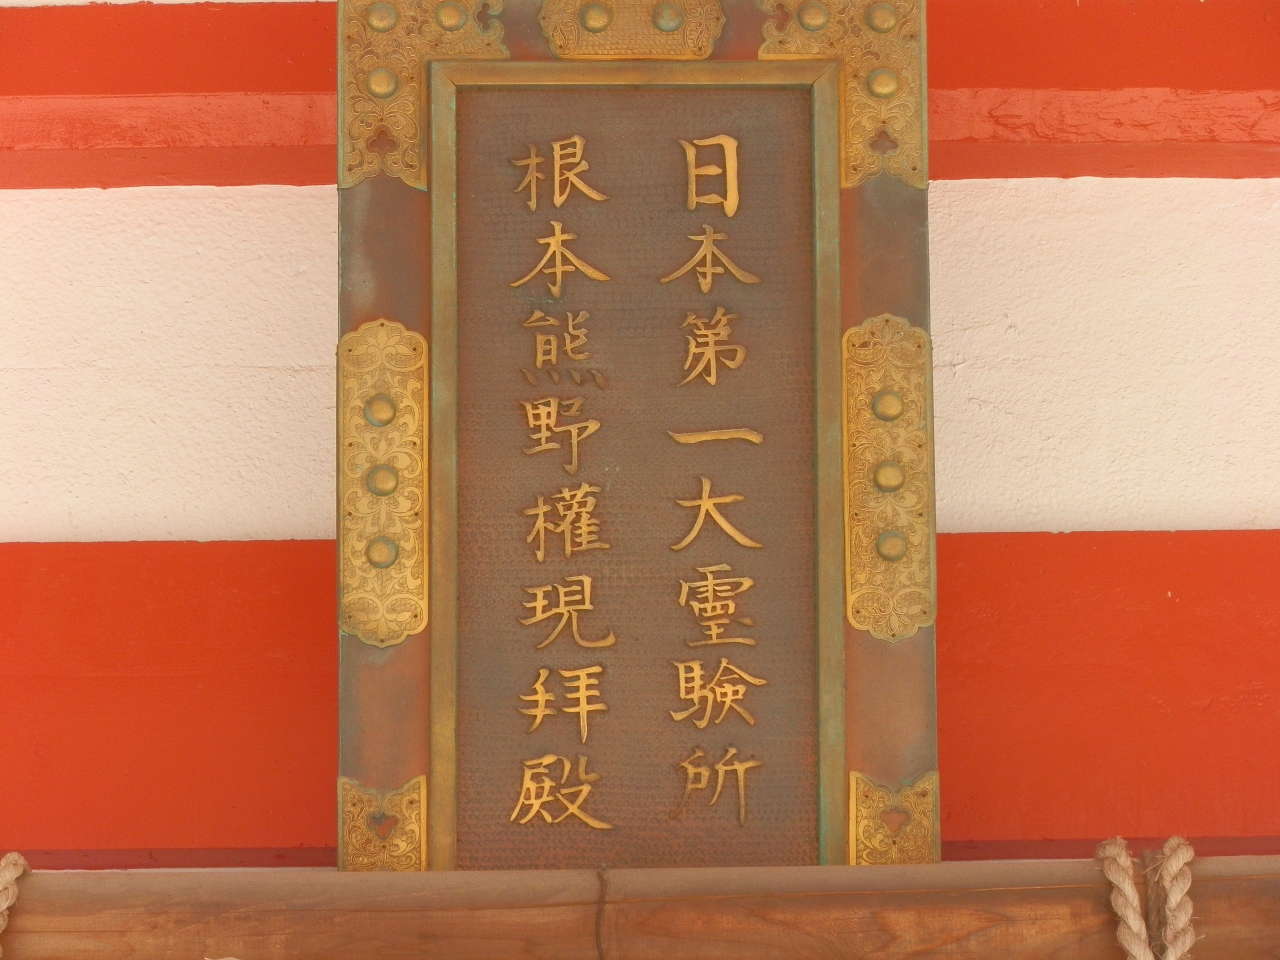 日本第一大霊験所
根本熊野權現拜殿